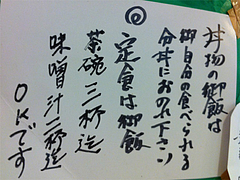 丼物の御飯は
御自分の食べられる
分丼におのれ下さい
◎
定食は御飯
茶碗三杯迄
味噌汁二杯迄
OKです